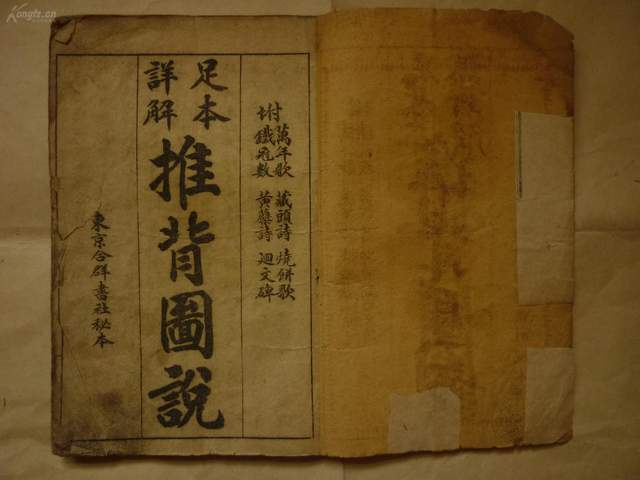 足本
詳解
推背圖說
附
萬年歌 藏頭詩 燒餅歌
鐵冠數 黃蘗詩 迴文碑
東京合群書社秘本
Kongfz.cn